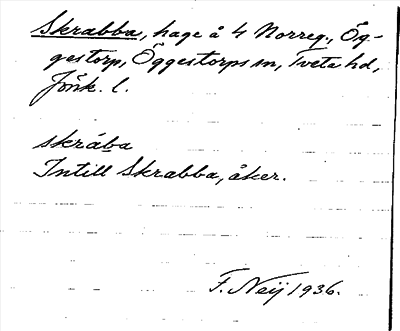 Skrabba, hage å 4 Norreg., Ög-
gestorp, Öggestorps sn, Tveta hd,
Jönk. l.
skrába
Intill Skrabba, åker.
F. Neij 1936.